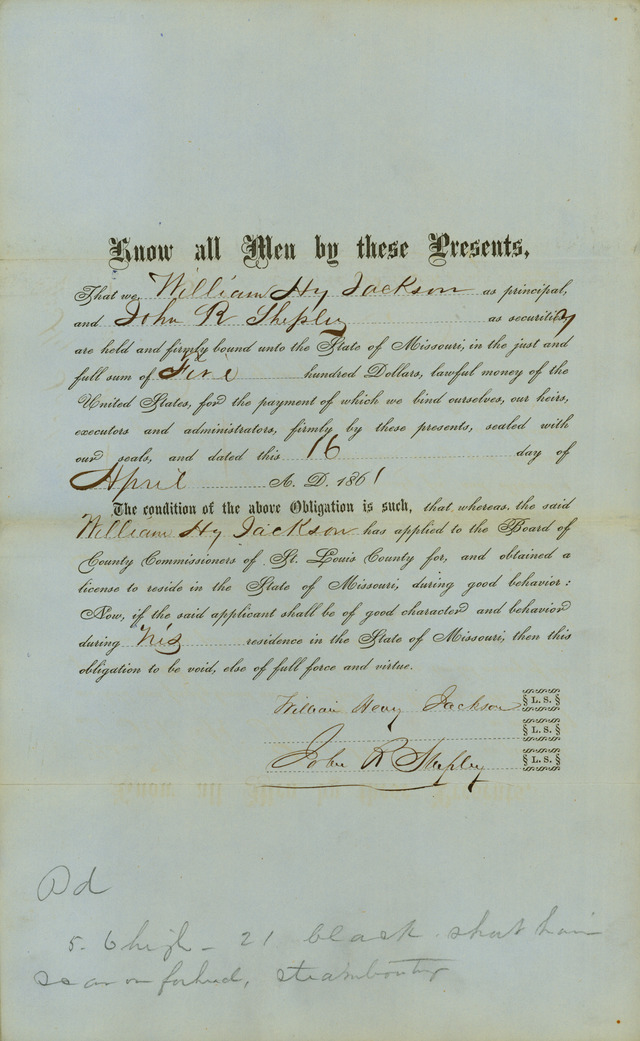 Know all Men by these Presents,
That we William Hy Jackson as principal,
and John R Shepley as security
are held and firmly bound unto the State of Missouri, in the just and
full sum of Five hundred Dollars, lawful money of the
United States, for the payment of which we bind ourselves, our heirs,
executors and administrators, firmly by these presents, sealed with
our seals, and dated this 16 day of
April A. D. 1861
The condition of the above Obligation is such, that whereas, the said
William Hy Jackson has applied to the Board of
County Commissioners of St. Louis County for, and obtained a
license to reside in the State of Missouri, during good behavior:
Now, if the said applicant shall be of good character and behavior
during his residence in the State of Missouri, then this
obligation to be void, else of full force and virtue.
William Henry Jackson L. S.
L. S.
John R Shepley L. S.
Pd
5-6 high - 21 black short hair
scar on forhed, steamboating